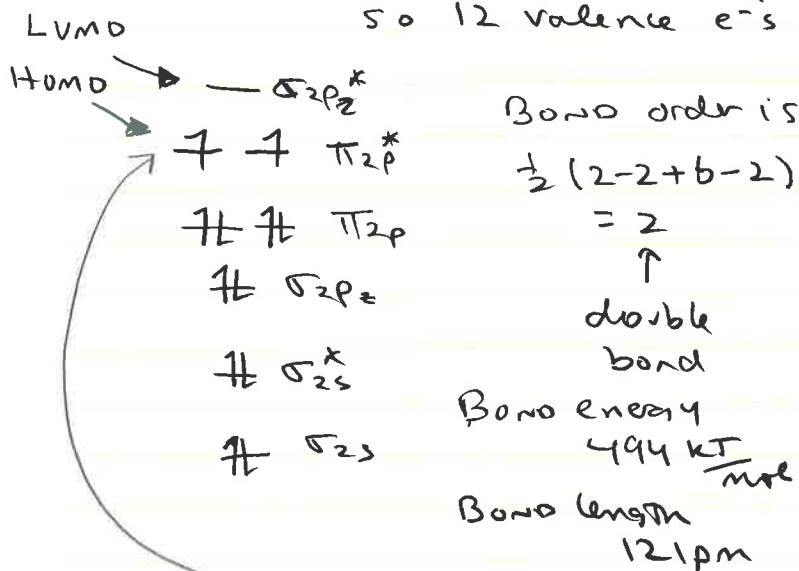 so 12 valence e⁻s
LUMO
HOMO
— σ2pz*
↿ ↿ π2p*
⇅ ⇅ π2p
⇅ σ2pz
⇅ σ2s*
⇅ σ2s
Bond order is
½ (2-2+6-2)
= 2
↑
double
bond
Bond energy
494 kJ/mol
Bond length
121pm